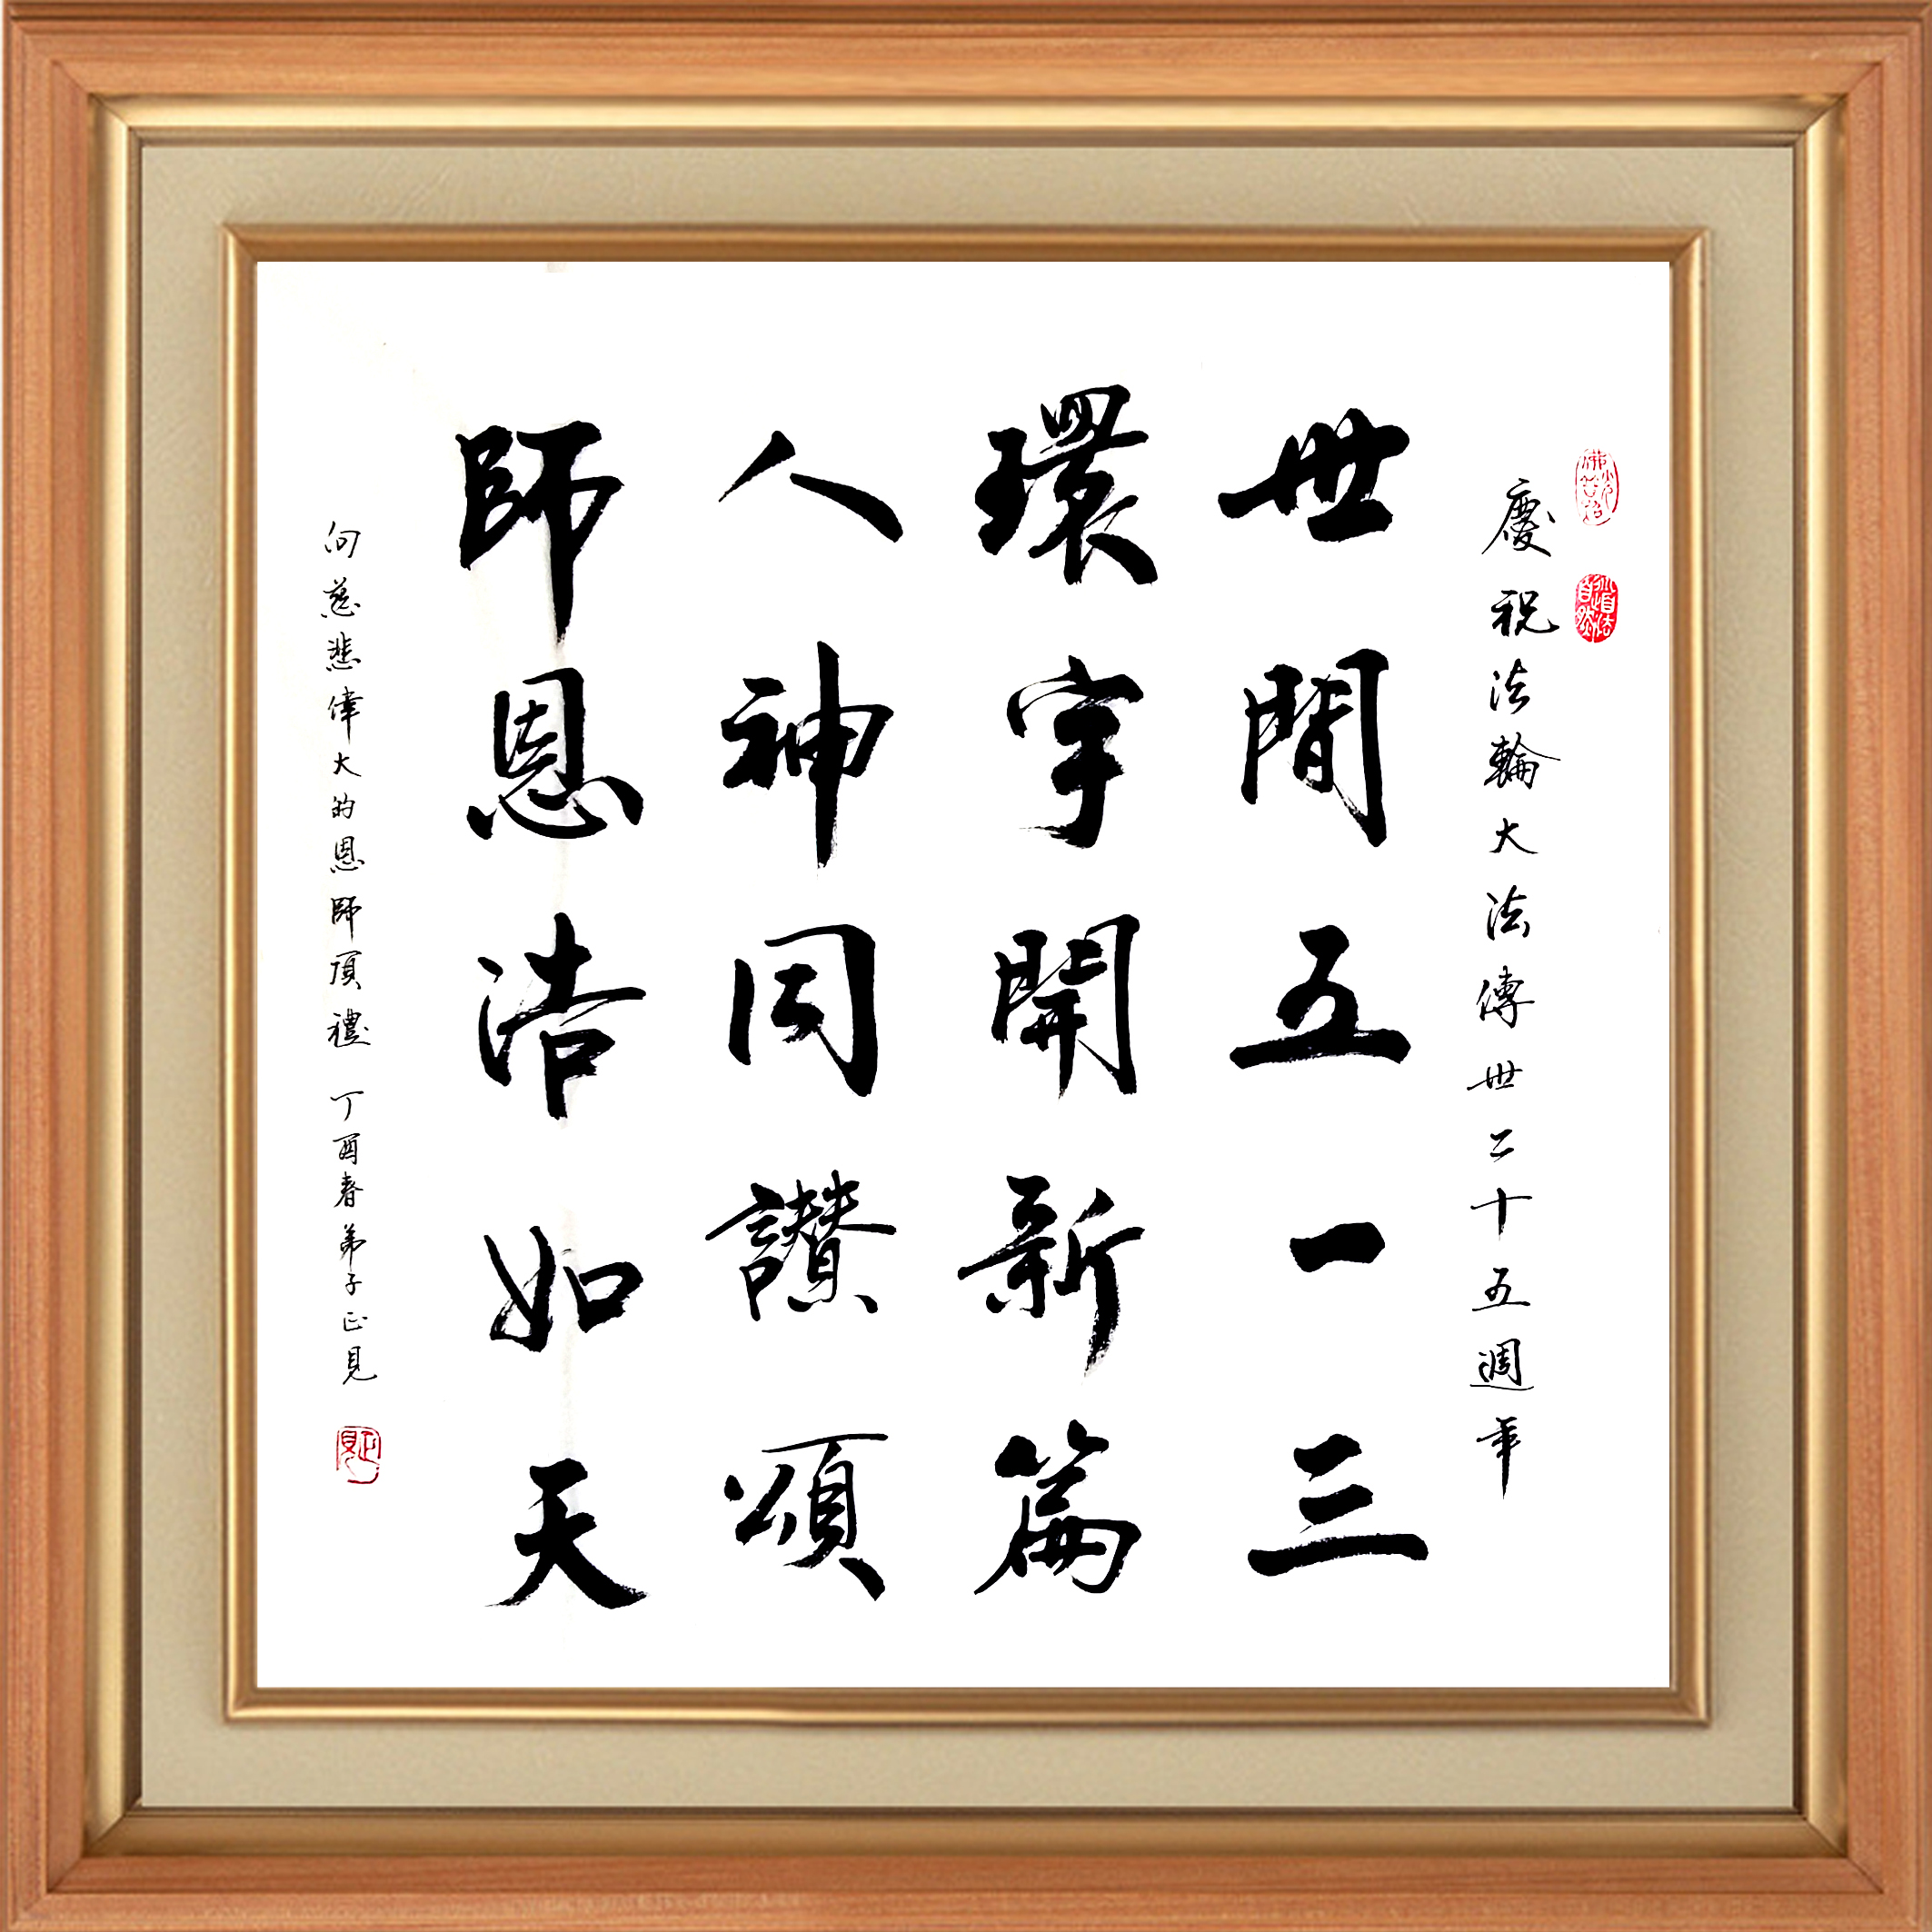 慶祝法輪大法傳世二十五週年
世間五一三
環宇開新篇
人神同讚頌
師恩浩如天
向慈悲偉大的恩師頂禮 丁酉春弟子正見
正見